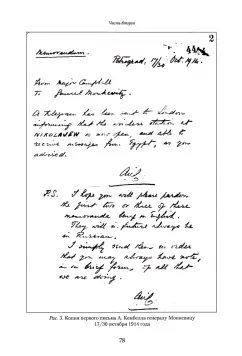 Части Второй
2
Memorandum.
Petrograd, 17/30 Oct. 1914.
From Major Campbell
To General Monkevitz
A telegram has been sent to London
informing that the wireless station at
NIKOLAJEW is now open, and able to
receive messages from Egypt, as you
advised.
P.S. I hope you will please pardon
the first two or three of these
memoranda being in English.
They will in future always be
in Russian.
I simply send them in order
that you may always have note,
in brief form, of all that
we are doing.
Рис. 3. Копия первого письма А. Кэмбелла генералу Монкевицу
17/30 октября 1914 года
78